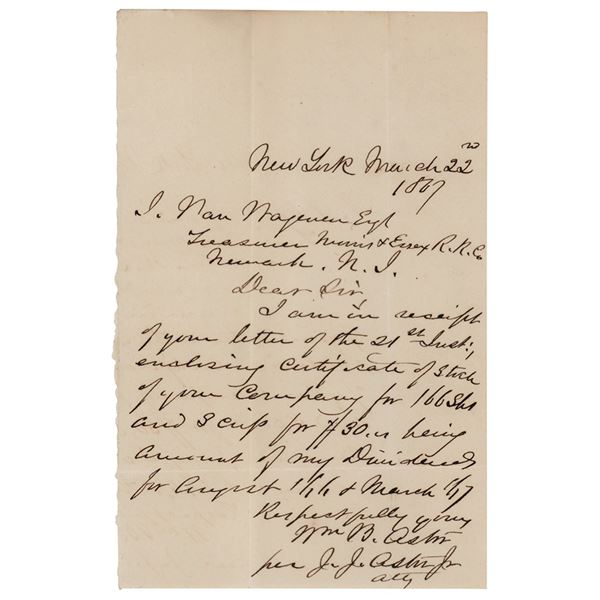 New York March 22nd
1867
J. Van Wagenen Esqr
Treasurer Morris & Essex R. R. Co
Newark. N. J.
Dear Sir
I am in receipt
of your letter of the 21st Inst;
enclosing certificate of Stock
of your Company for 166 Shs
and Scrip for $30. being
amount of my Dividends
for August & March
Respectfully yours
Wm B. Astor
per J. J. Astor Jr
atty